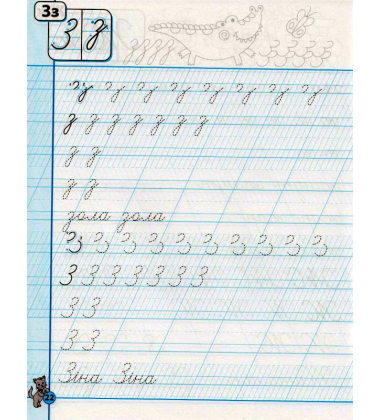 Зз
З з
з з з з з з з з
з з з з з з з
з з
з з
зола зола
З З З З З З З З З
З З З З З З З
З З
З З
Зіна Зіна
22